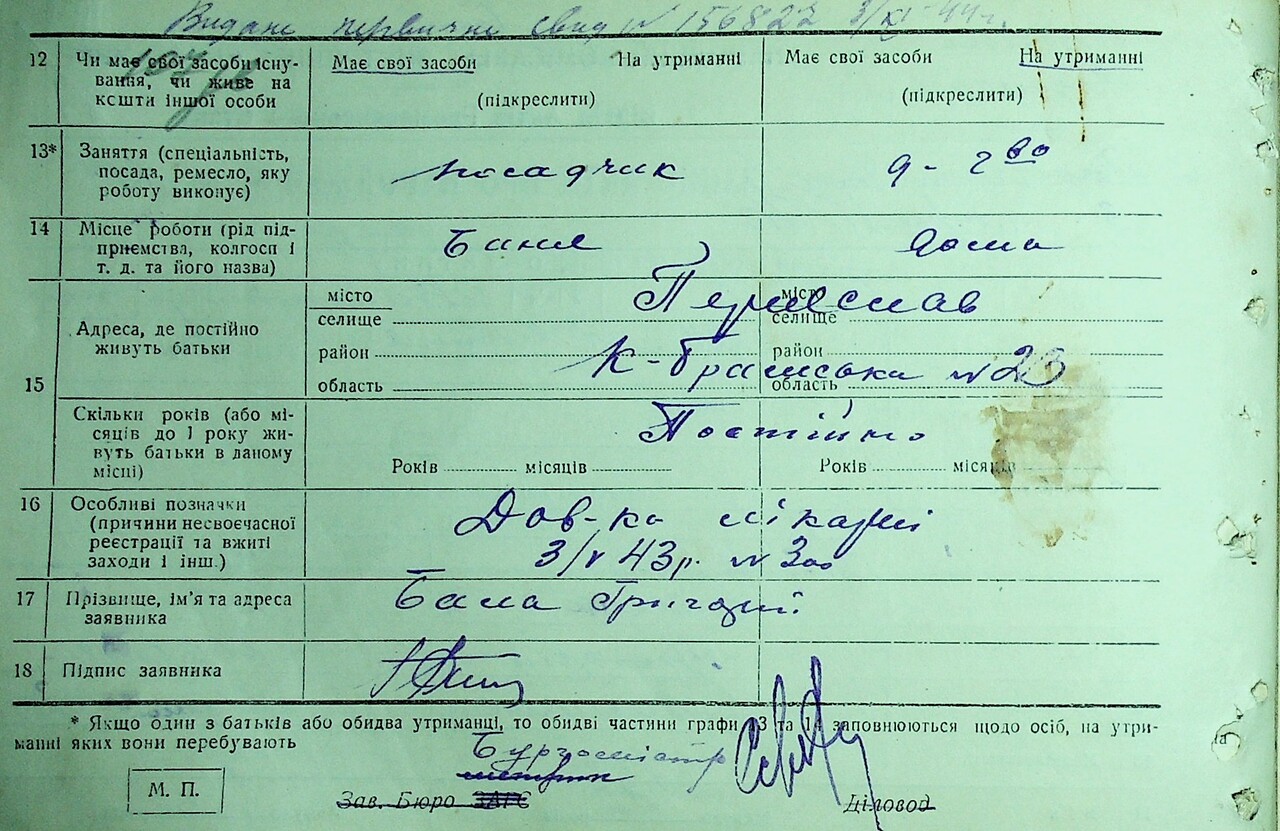 Видано первичне свид № 156822 3/XI-44 г.
12 Чи має свої засоби існу-
вання, чи живе на
кошти іншої особи
Має свої засоби На утриманні
(підкреслити)
Має свої засоби На утриманні
(підкреслити)
13* Заняття (спеціальність,
посада, ремесло, яку
роботу виконує)
посадчик
д-г во
14 Місце роботи (рід під-
приємства, колгосп і
т. д. та його назва)
Баня
дома
15 Адреса, де постійно
живуть батьки
місто
селище
район
область
місто
селище
район
область
Переяслав
К-Брамська № 23
Скільки років (або мі-
сяців до 1 року жи-
вуть батьки в даному
місці)
Постійно
Років місяців
Років місяців
16 Особливі позначки
(причини несвоєчасної
реєстрації та вжиті
заходи і інш.)
Дов-ка лікарні
3/V 43р. № 300
17 Прізвище, ім'я та адреса
заявника
Бала Григорій
18 Підпис заявника
* Якщо один з батьків або обидва утриманці, то обидві частини графи 13 та 14 заповнюються щодо осіб, на утри-
манні яких вони перебувають
Бургомістр
М. П.
Зав. Бюро ЗАГС
Діловод